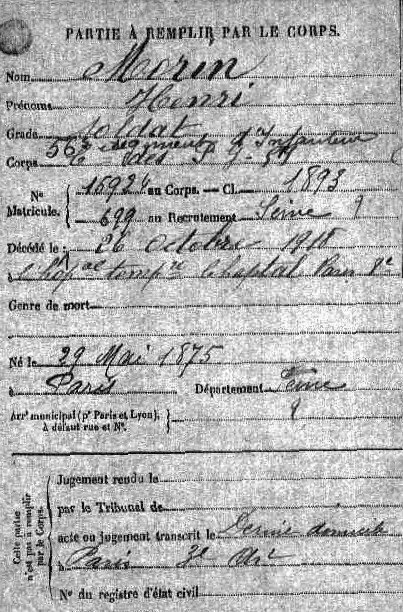 PARTIE À REMPLIR PAR LE CORPS.
Nom Morin
Prénoms Henri
Grade Soldat
56e régiment d'Infanterie
Corps
Nº Matricule. 15924 au Corps. — Cl. 1893
699 au Recrutement Seine
Décédé le 26 octobre 1918
à l'hôpal tempre Chaptal Paris 8e
Genre de mort
Né le 29 Mai 1875
à Paris Département Seine
Arrt municipal (pr Paris et Lyon), à défaut rue et Nº.
Cette partie n'est pas à remplir par le Corps.
Jugement rendu le
par le Tribunal de
acte ou jugement transcrit le Dernier domicile
à Paris 3e Arr
Nº du registre d'état civil